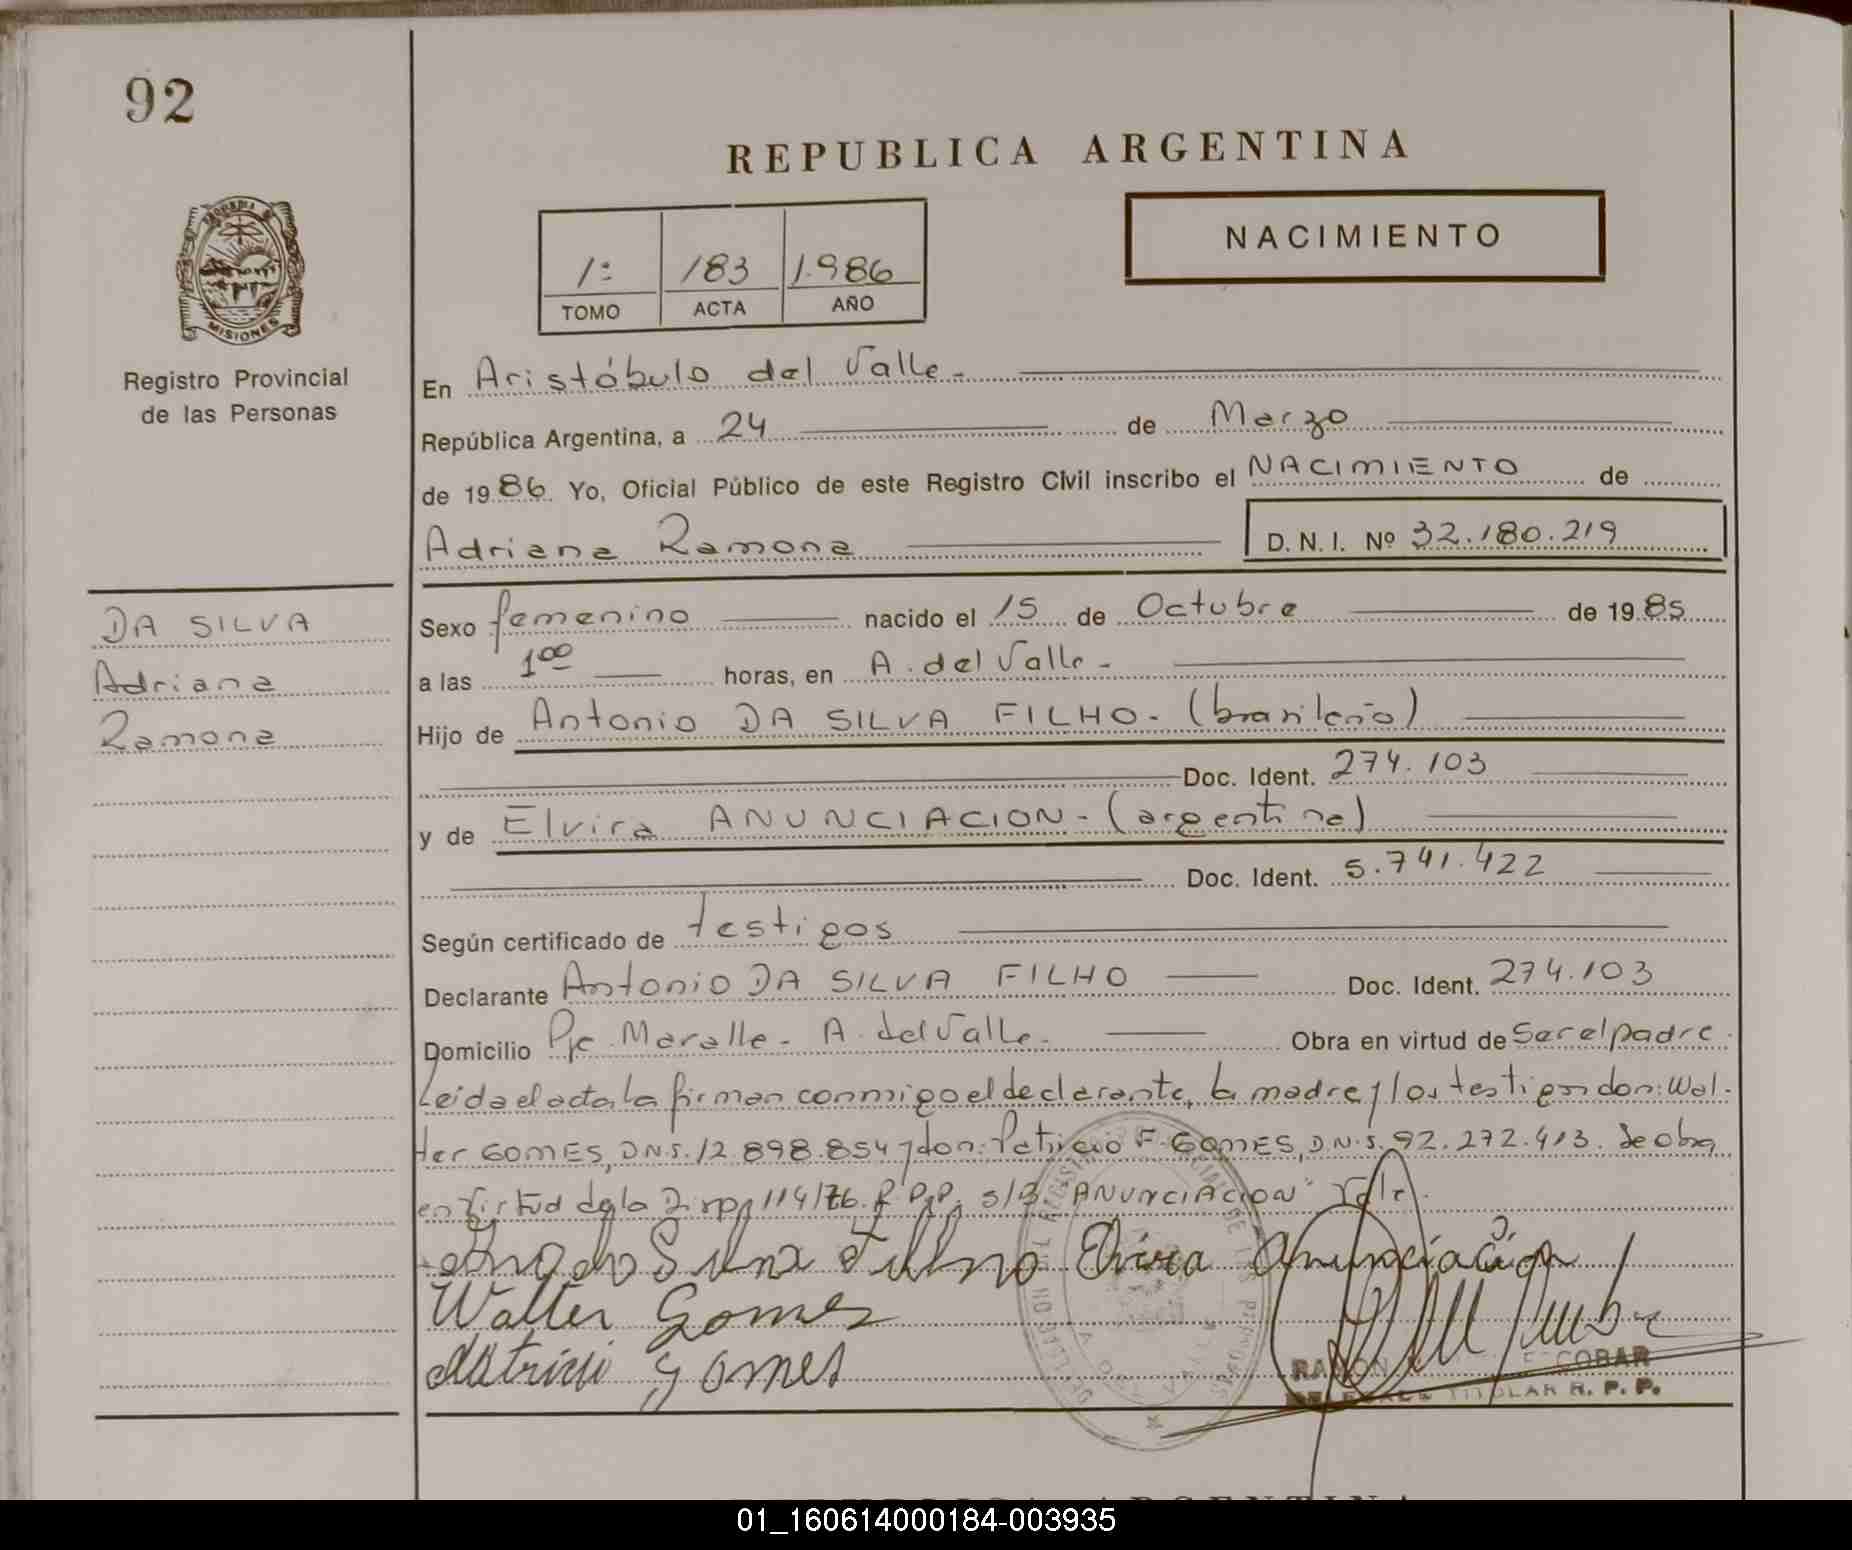 92
REPUBLICA ARGENTINA
NACIMIENTO
1: 183 1.986
TOMO ACTA AÑO
MISIONES
Registro Provincial
de las Personas
En Aristóbulo del Valle.-
República Argentina, a 24 de Marzo
de 1986. Yo, Oficial Público de este Registro Civil inscribo el NACIMIENTO de
Adriana Ramona D.N.I. Nº 32.180.219
DA SILVA
Adriana
Ramona
Sexo femenino nacido el 15 de Octubre de 1985
a las 1 00 horas, en A. del Valle-
Hijo de Antonio DA SILVA FILHO- (brasileño)
Doc. Ident. 274.103
y de Elvira ANUNCIACION- (argentina)
Doc. Ident. 5.741.422
Según certificado de testigos
Declarante Antonio DA SILVA FILHO Doc. Ident. 274.103
Domicilio Pje Maralle- A. del Valle- Obra en virtud de ser el padre.
Leida el acta, la firman conmigo el declarante, la madre y los testigos don: Wal-
ter GOMES, D.N.I. 12.898.854 y don: Patricio F. GOMES, D.N.I. 92.272.413. Se obra
en virtud de la Disp. 114/76. R.P.P. s/B. "ANUNCIACION" Vale.
da Silva Filho Elvira Anunciación
Walter Gomes
Patricio Gomes
RAMON ESCOBAR
TITULAR R. P. P.
01_160614000184-003935